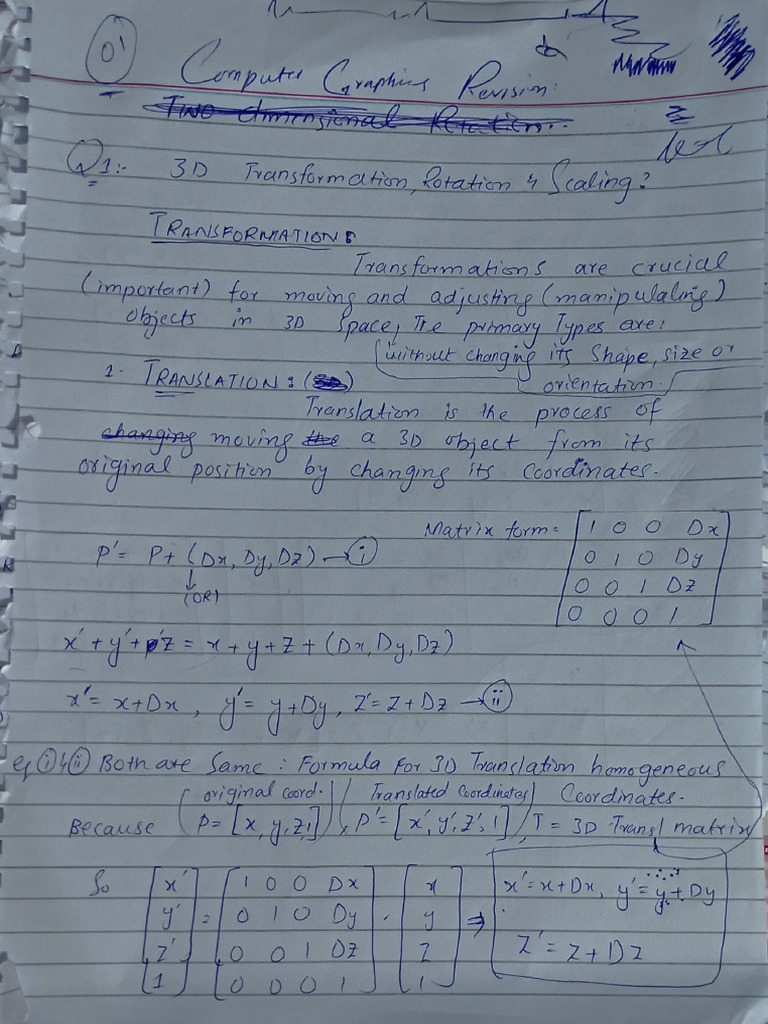 01
Computer Graphics Revision:
Two dimensional Rotation:-
Q1:- 3D Transformation, Rotation & Scaling?
TRANSFORMATION:
Transformations are crucial
(important) for moving and adjusting (manipulating)
objects in 3D Space, The primary Types are:
(without changing its Shape, size or
orientation.
1. TRANSLATION: ( )
Translation is the process of
changing moving the a 3D object from its
original position by changing its Coordinates.
Matrix form = [1 0 0 Dx
0 1 0 Dy
0 0 1 Dz
0 0 0 1]
P' = P + (Dx, Dy, Dz) → (i)
↓
(OR)
x' + y' + z' = x + y + z + (Dx, Dy, Dz)
x' = x + Dx , y' = y + Dy , z' = z + Dz → (ii)
eq (i) & (ii) Both are Same : Formula For 3D Translation homogeneous
Coordinates.
Because (original coord. P = [x, y, z, 1]), (Translated Coordinates P' = [x', y', z', 1]), T = 3D Transl matrix
So [x' y' z' 1] = [1 0 0 Dx
0 1 0 Dy
0 0 1 Dz
0 0 0 1] . [x y z 1] ⇒ x' = x + Dx, y' = y + Dy
z' = z + Dz